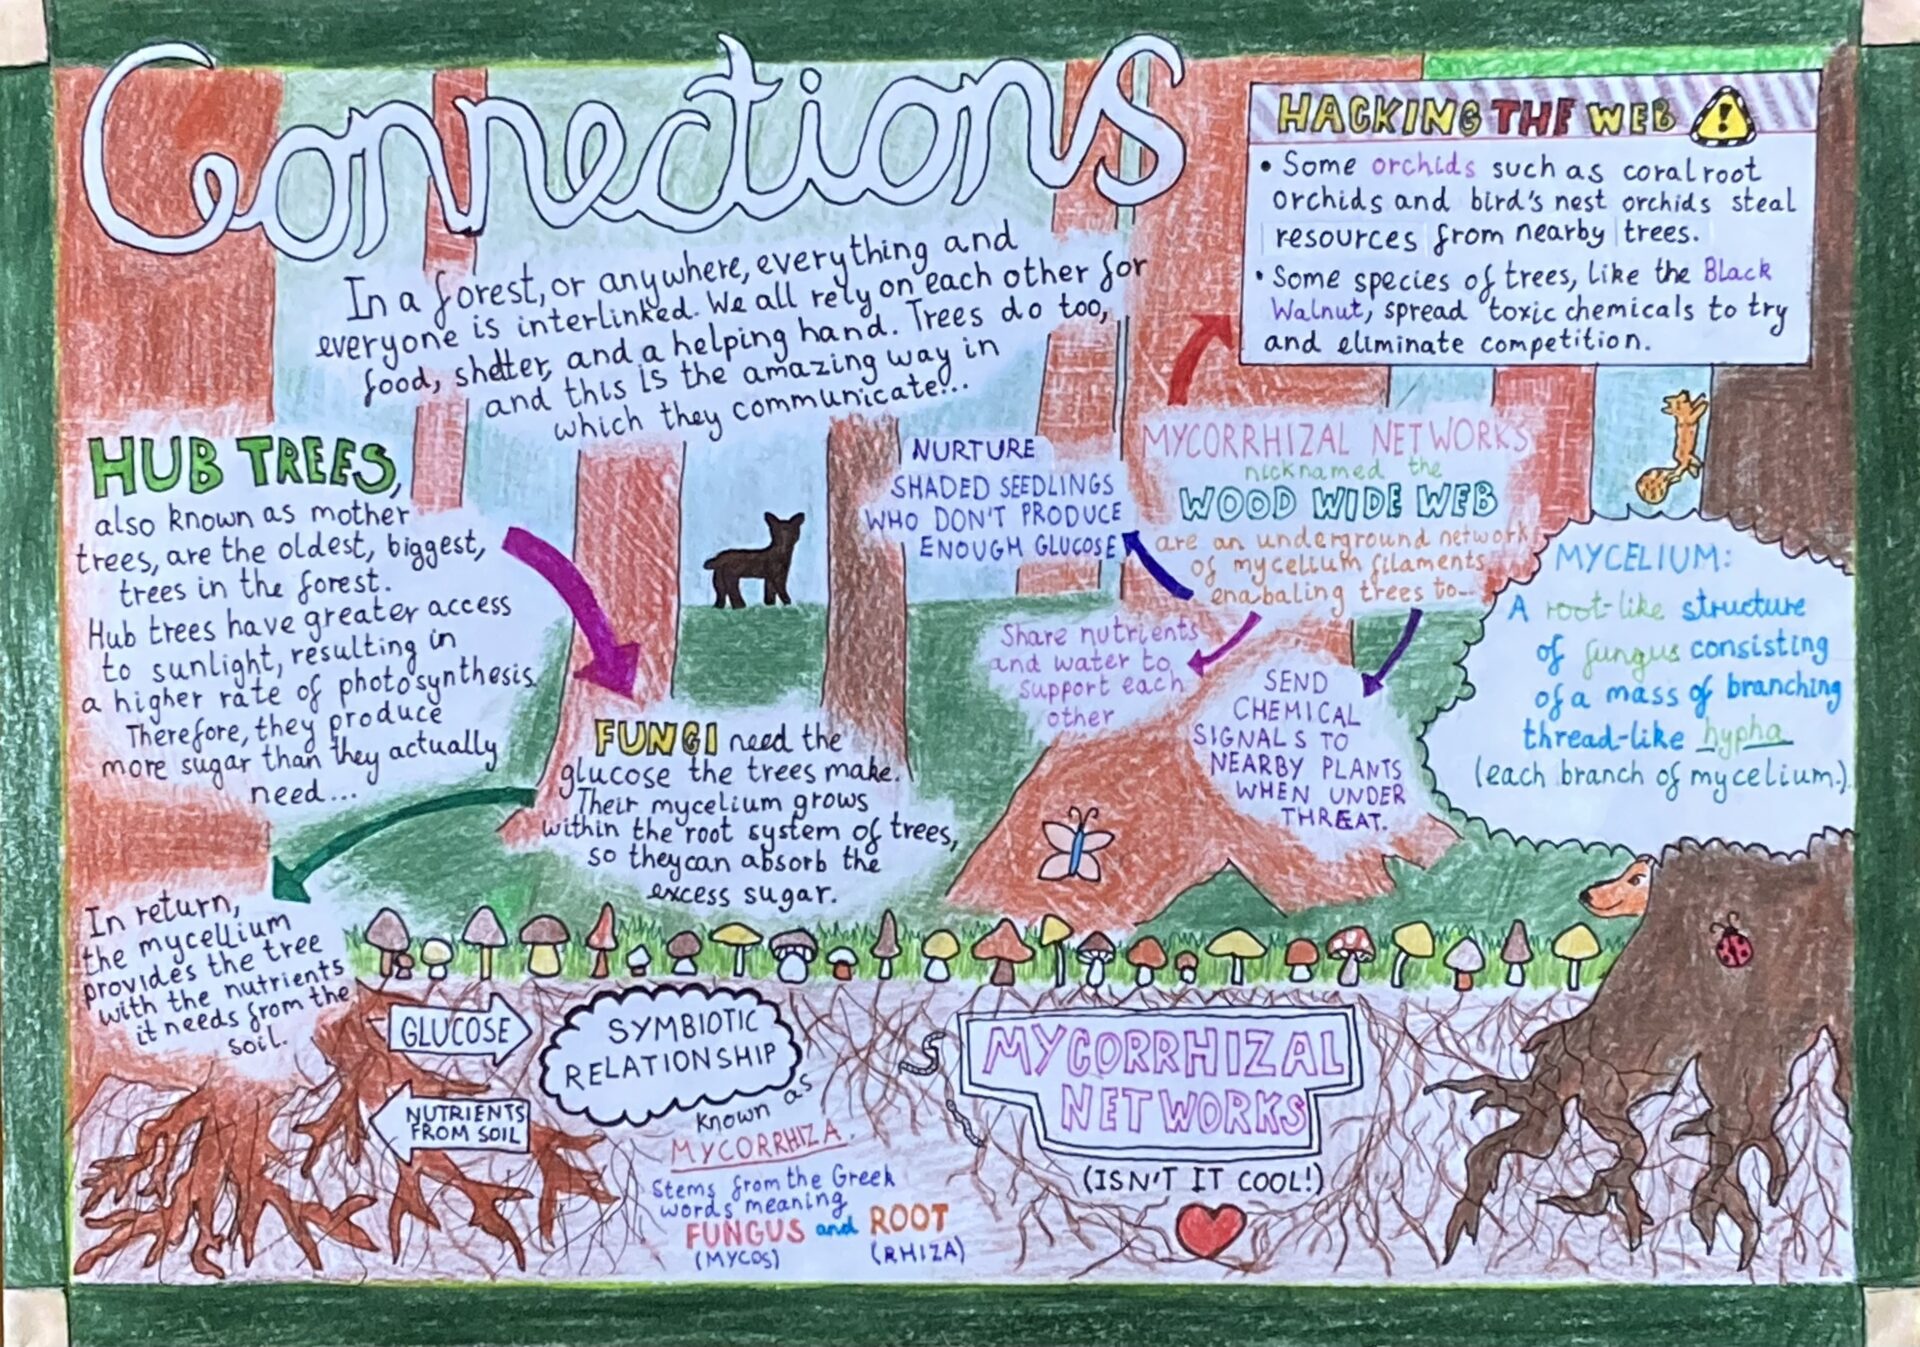 Connections
In a forest, or anywhere, everything and
everyone is interlinked. We all rely on each other for
food, shelter, and a helping hand. Trees do too,
and this is the amazing way in
which they communicate!..
HACKING THE WEB
• Some orchids such as coralroot
orchids and bird's nest orchids steal
resources from nearby trees.
• Some species of trees, like the Black
Walnut, spread toxic chemicals to try
and eliminate competition.
HUB TREES,
also known as mother
trees, are the oldest, biggest,
trees in the forest.
Hub trees have greater access
to sunlight, resulting in
a higher rate of photosynthesis.
Therefore, they produce
more sugar than they actually
need...
FUNGI need the
glucose the trees make.
Their mycelium grows
within the root system of trees,
so they can absorb the
excess sugar.
In return,
the mycellium
provides the tree
with the nutrients
it needs from the
soil.
MYCORRHIZAL NETWORKS
nicknamed the
WOOD WIDE WEB
are an underground network
of mycelium filaments
enabaling trees to...
NURTURE
SHADED SEEDLINGS
WHO DON'T PRODUCE
ENOUGH GLUCOSE
Share nutrients
and water to
support each
other
SEND
CHEMICAL
SIGNALS TO
NEARBY PLANTS
WHEN UNDER
THREAT.
MYCELIUM:
A root-like structure
of fungus consisting
of a mass of branching
thread-like hypha
(each branch of mycelium.)
GLUCOSE
NUTRIENTS
FROM SOIL
SYMBIOTIC
RELATIONSHIP
known as
MYCORRHIZA.
Stems from the Greek
words meaning
FUNGUS and ROOT
(MYCOS) (RHIZA)
MYCORRHIZAL
NETWORKS
(ISN'T IT COOL!)